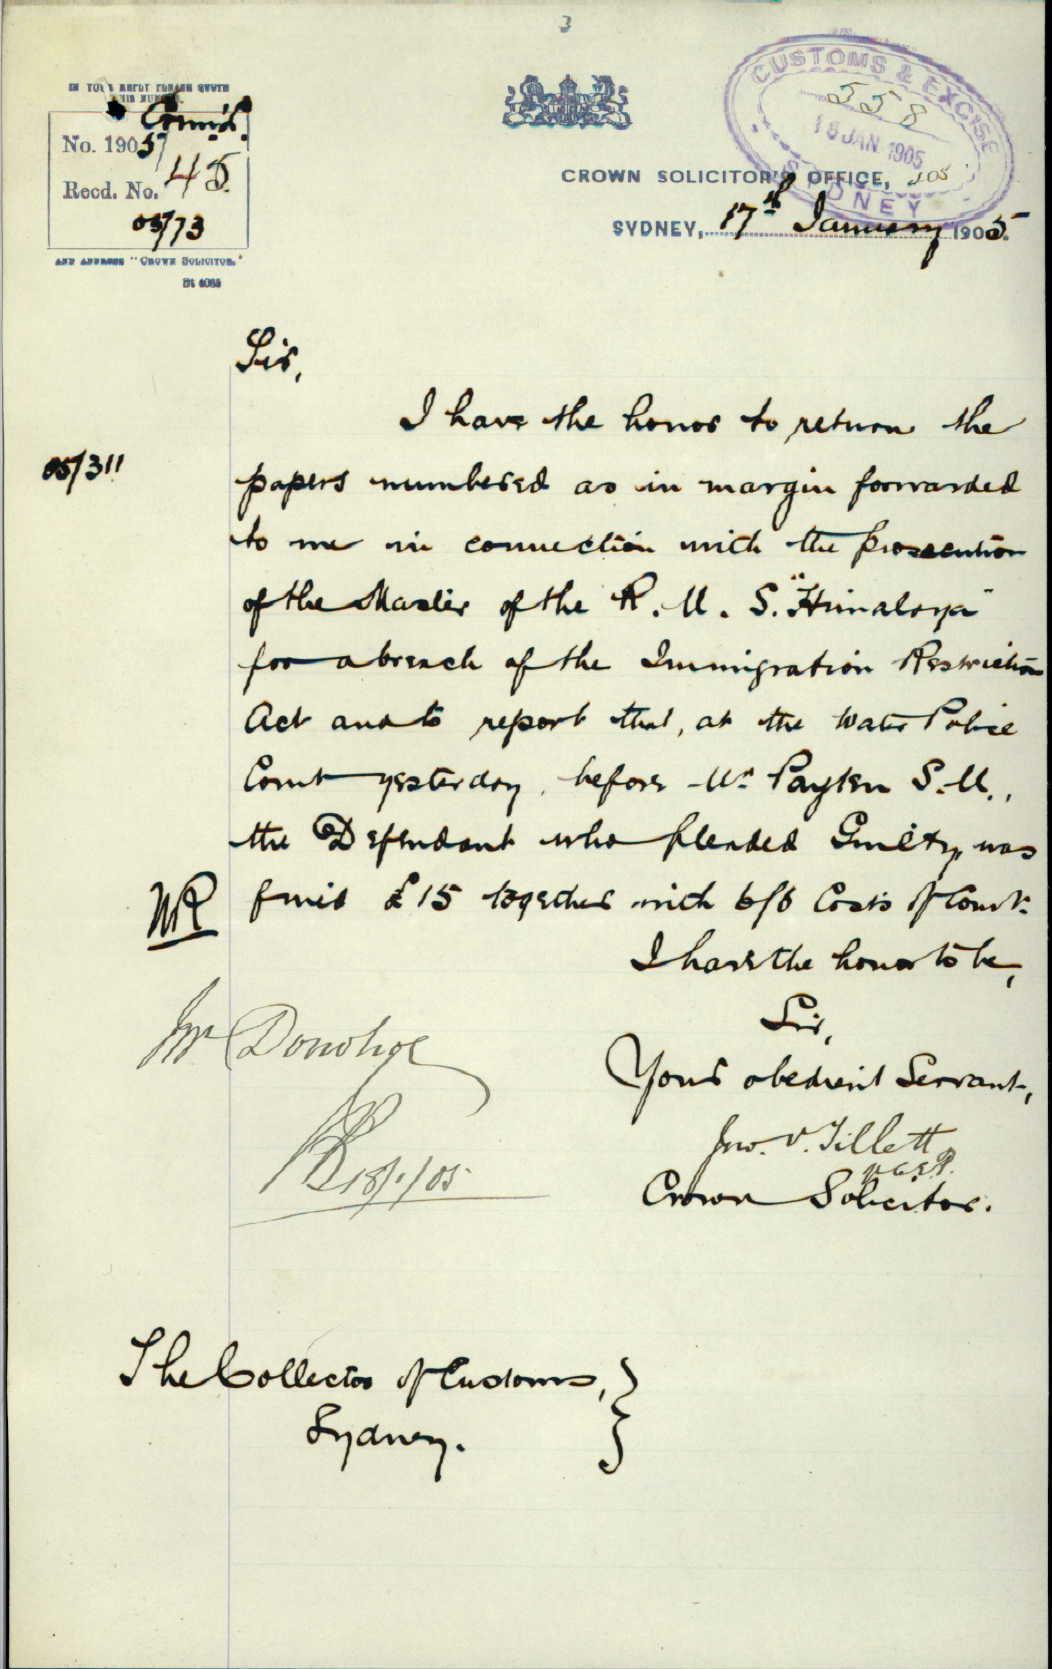 3
IN YOUR REPLY PLEASE QUOTE
THIS NUMBER.
Com'd.
No. 1905/
Recd. No. 45.
05/73
AND ADDRESS "CROWN SOLICITOR."
CUSTOMS & EXCISE
558
18 JAN. 1905
SYDNEY
CROWN SOLICITOR'S OFFICE,
SYDNEY, 17th January 1905.
Sir,
I have the honor to return the
05/311
papers numbered as in margin forwarded
to me in connection with the prosecution
of the Master of the R. M. S. "Himalaya"
for a breach of the Immigration Restriction
Act and to report that, at the Water Police
Court yesterday, before Mr. Payten S.M.,
the Defendant who pleaded Guilty, was
fined £15 together with 6/6 Costs of Court.
I have the honor to be,
Sir,
Your obedient Servant,
Jno. V. Tillett
Crown Solicitor.
Mr Donohoe
18/1/05
The Collector of Customs,
Sydney.